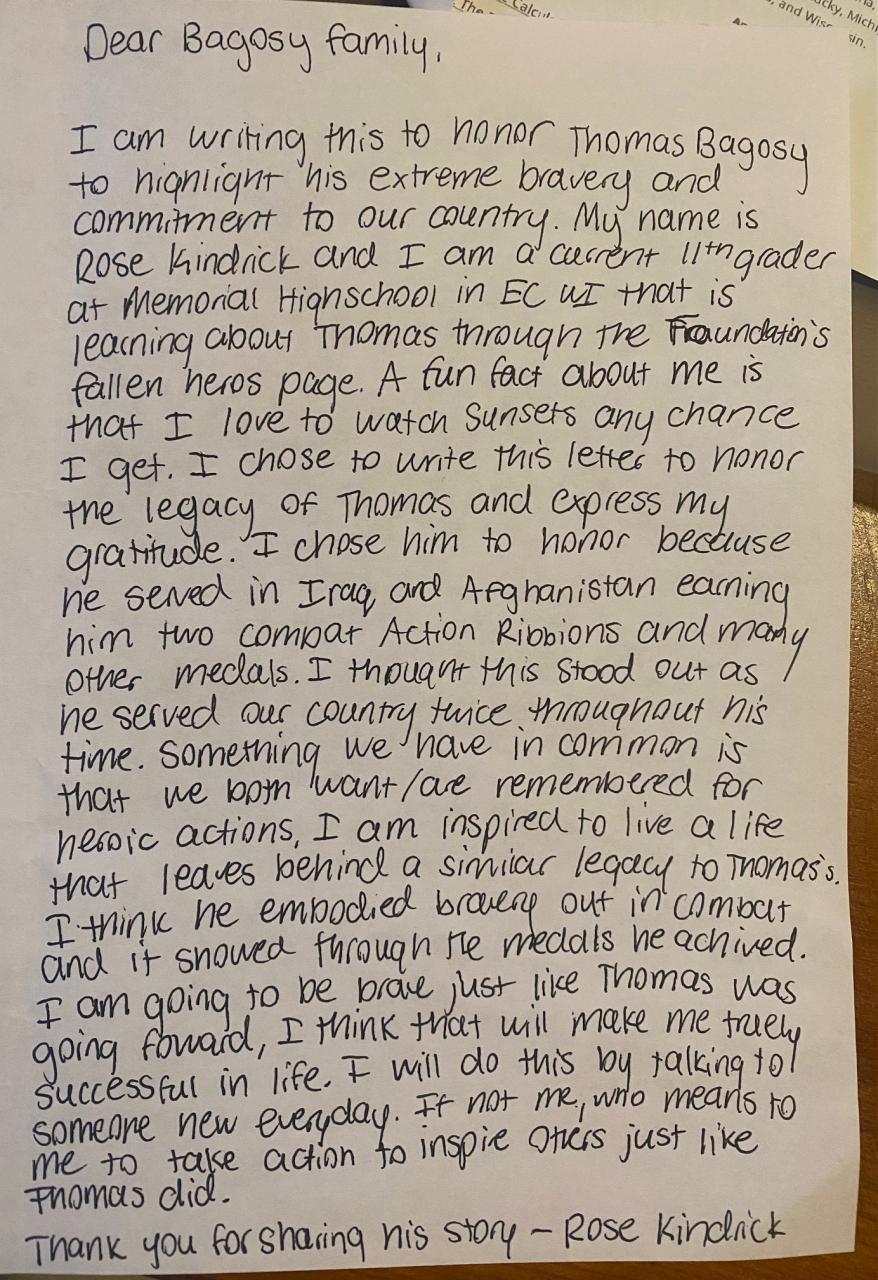 The
Calcul
ucky, Michi
, and Wisc
sin.
Dear Bagosy family,
I am writing this to honor Thomas Bagosy
to highlight his extreme bravery and
commitment to our country. My name is
Rose Kindrick and I am a current 11th grader
at Memorial Highschool in EC WI that is
learning about Thomas through the Foundation's
fallen heros page. A fun fact about me is
that I love to watch sunsets any chance
I get. I chose to write this letter to honor
the legacy of Thomas and express my
gratitude. I chose him to honor because
he served in Iraq, and Afghanistan earning
him two combat Action Ribbions and many
other medals. I thought this stood out as
he served our country twice throughout his
time. Something we have in common is
that we both want/are remembered for
heroic actions, I am inspired to live a life
that leaves behind a similar legacy to Thomas's.
I think he embodied bravery out in combat
and it showed through the medals he achived.
I am going to be brave just like Thomas was
going foward, I think that will make me truely
successful in life. I will do this by talking to
someone new everyday. If not me, who means to
me to take action to inspie others just like
Thomas did.
Thank you for sharing his story - Rose Kindrick